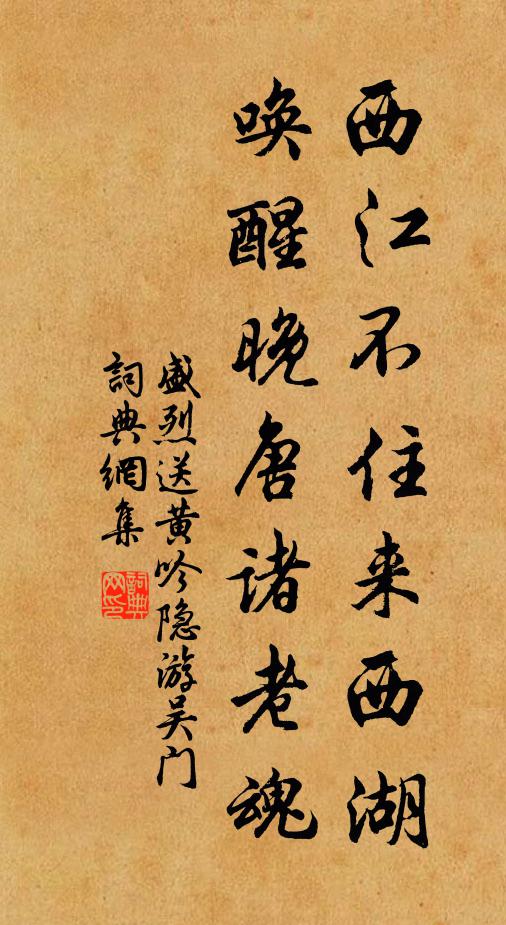 西江不住来西湖
唤醒晚唐诸老魂
盛烈送黄吟隐游吴门
詞典網集
詞典网印